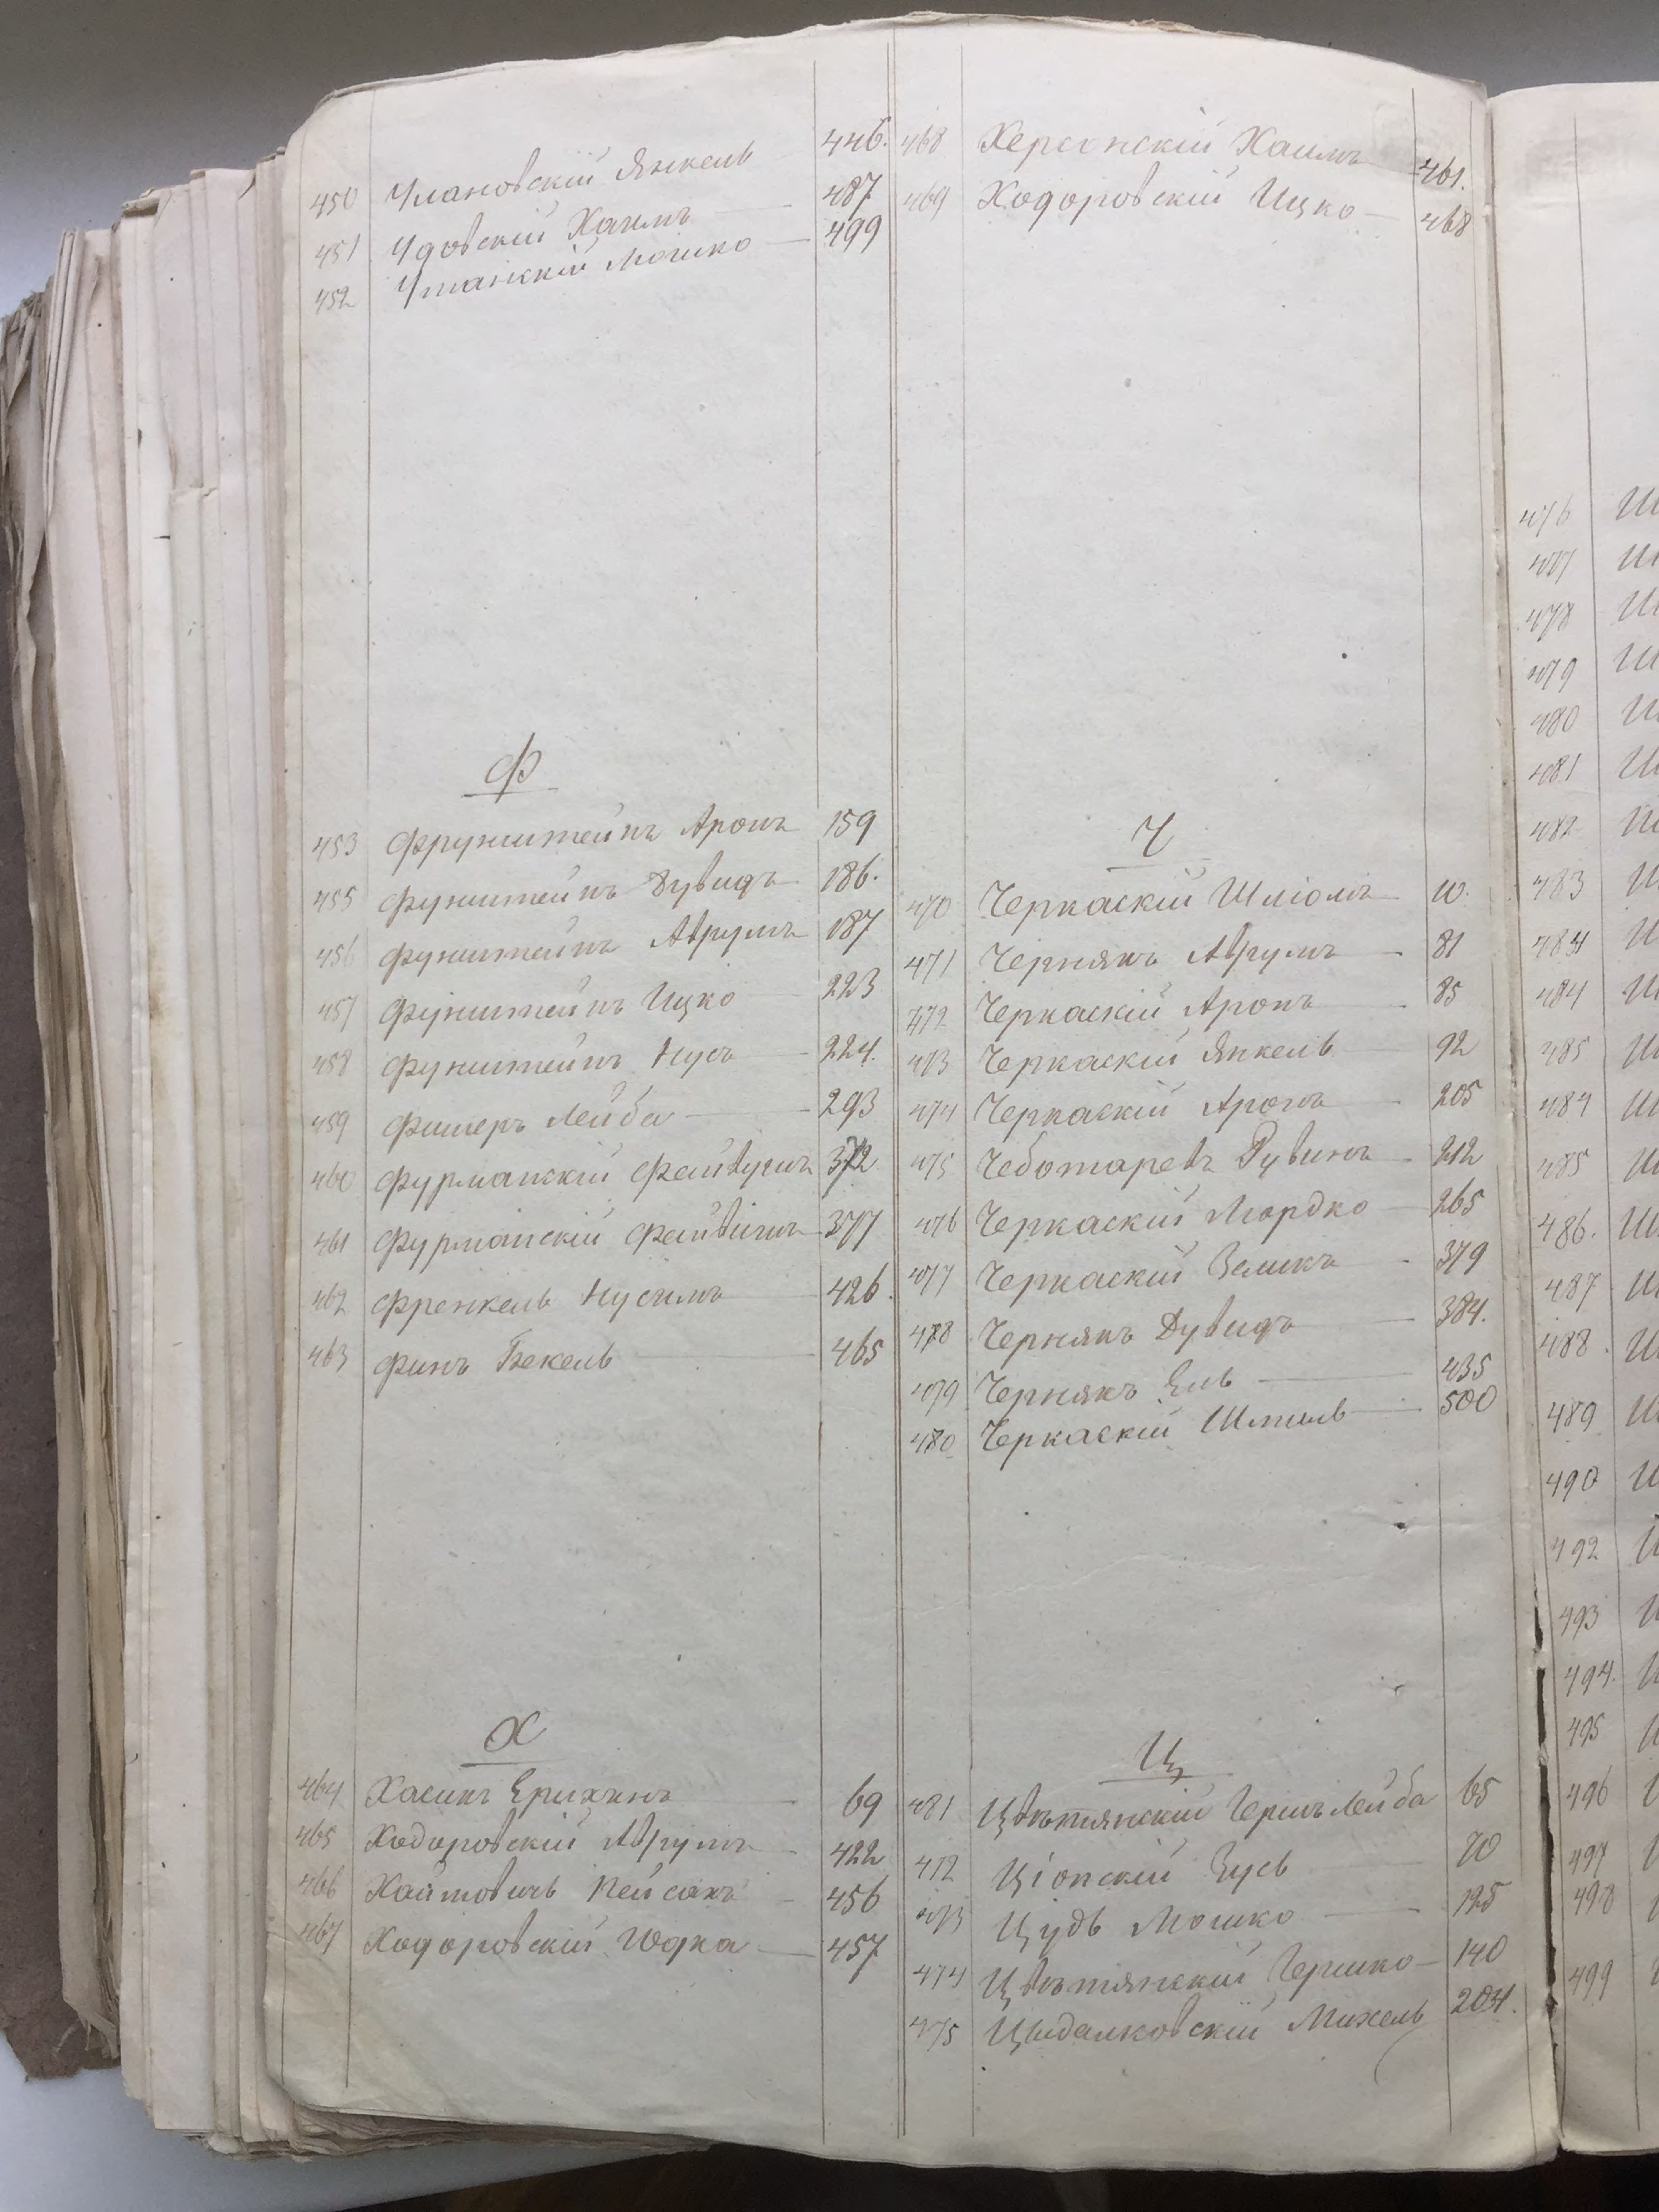 450 Улановскій Янкель 446.
451 Удовскій Хаимъ 487
452 Уманскій Мошко 499
Ф
453 Фрунштейнъ Аронъ 159
455 Фунштейнъ Дувидъ 186.
456 Фунштейнъ Аврумъ 187
457 Фунштейнъ Ицко 223
458 Фунштейнъ Нусъ 224.
459 Фишеръ Лейба 293
460 Фурманскій 372
461 Фурманскій 377
462 Френкель Нусимъ 426.
463 Финъ Бекель 465
Х
464 Хасинъ 69
465 Ходоровскій Аврумъ 422
466 Хаймовичъ Пейсахъ 456
467 Ходоровскій Юдка 457
468 Херсонскій Хаимъ 461.
469 Ходоровскій Ицко 468
Ч
470 Черкаскій Шліомъ 10.
471 Чернякъ Аврумъ 81
472 Черкаскій Аронъ 85
473 Черкаскій Янкель 92
474 Черкаскій Аронъ 205
475 Чеботаревъ Рувинъ 212
476 Черкаскій Мордко 265
477 Черкаскій Зеликъ 379
478 Чернякъ Дувидъ 384.
479 Чернякъ Ель 435
480 Черкаскій Шмиль 500
Ц
481 Цвѣтянскій Гершъ Лейба 65
472 Ціопскій Зусь 70
473 Цудь Мошко 125
474 Цвѣтянскій Гершко 140
475 Цыбалковскій Михель 204.
476
477
478
479
480
481
482
483
484
484
485
484
485
486.
487
488.
489
490
492
493
494.
495
496
497
498
499